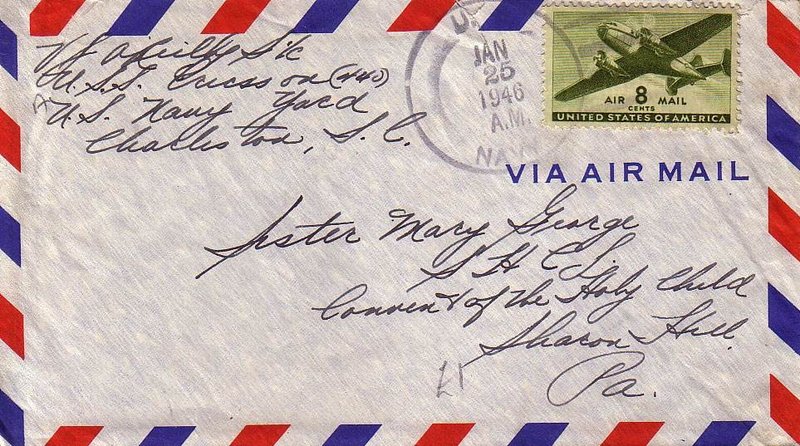 S1c
U.S.S. Ericsson (440)
U.S. Navy Yard
Charleston, S.C.
JAN
25
1946
A.M.
NAVY
AIR 8 MAIL
CENTS
UNITED STATES OF AMERICA
VIA AIR MAIL
Sister Mary George
S H C J.
Convent of the Holy Child
Sharon Hill.
Pa.